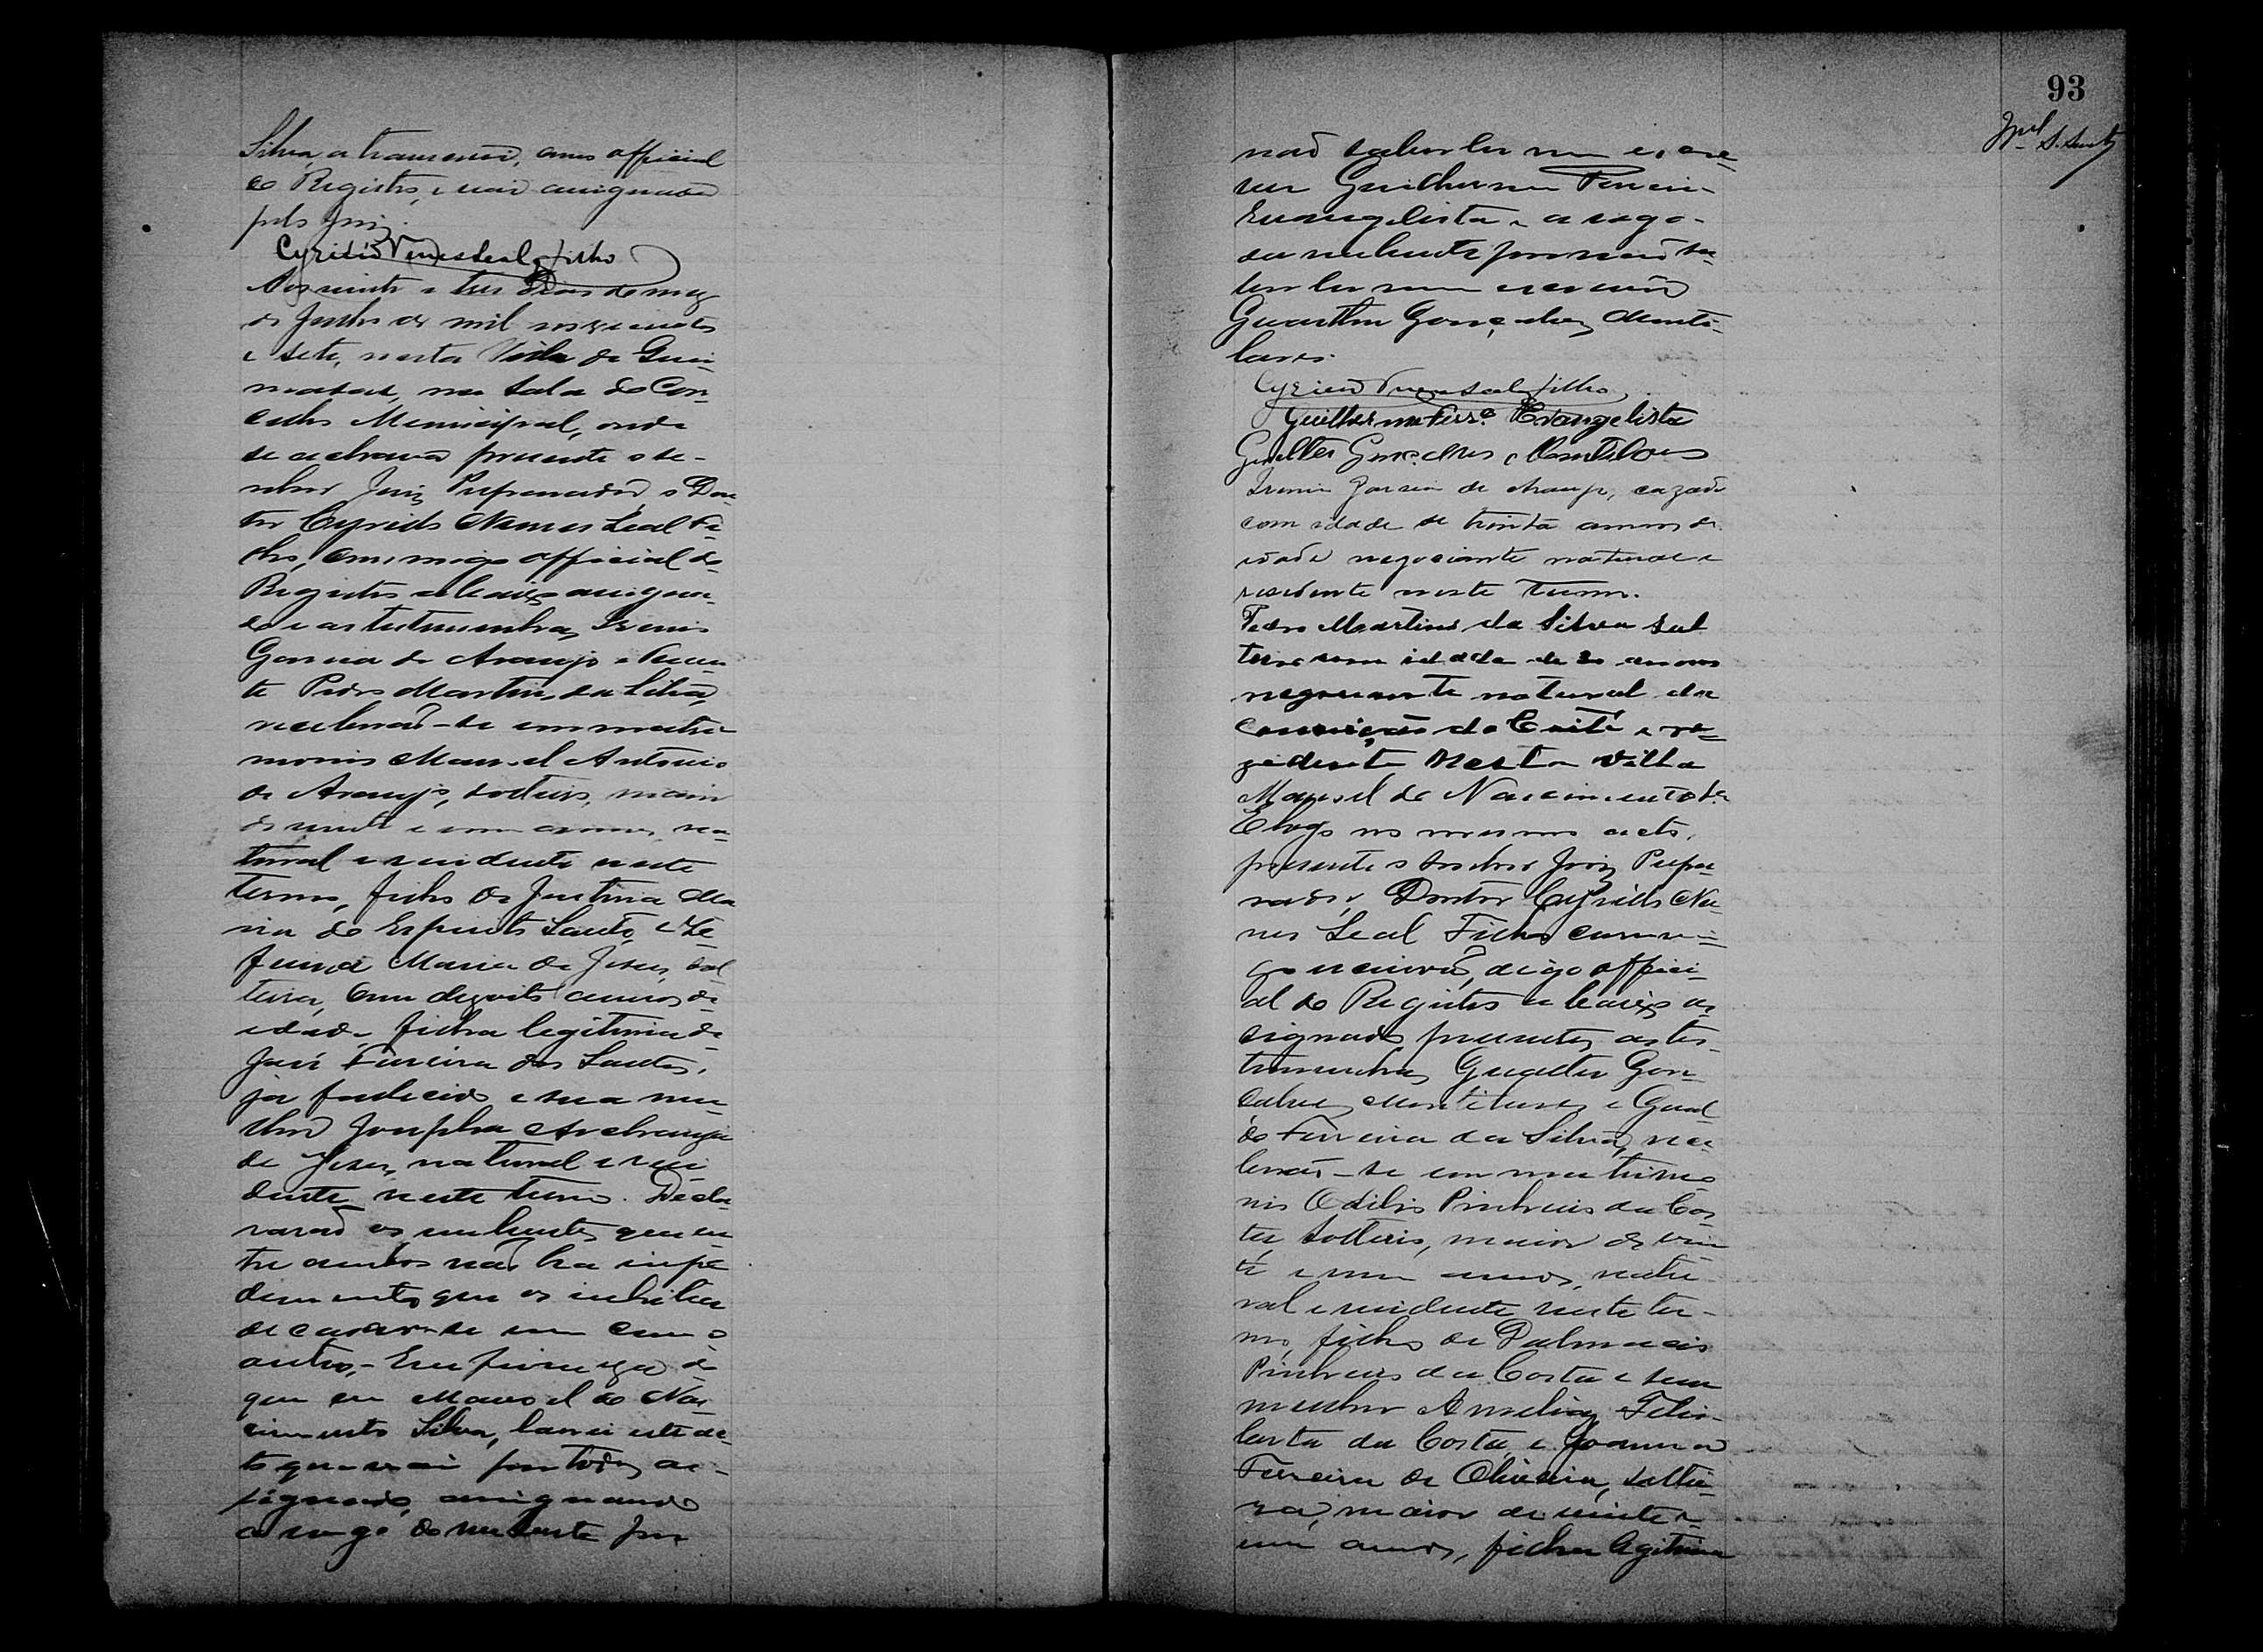 Silva, a transcrevi, como official
do Registro, e vai assignada
pelo Juiz.
Cyridião Nunes Leal filho
Aos vinte e tres dias do mez
de Julho de mil novecentos
e sete, nesta Villa de Quei-
madas, na sala do Con-
celho Municipal, onde
se achava presente o se-
nhor Juiz Preparador o Dou-
tor Cyridião Nunes Leal Fi-
lho, commigo official do
Registro abaixo assigna-
do e as testemunhas Irenio
Garcia de Araujo e Tenen-
te Pedro Martins da Silva,
receberaõ-se em matri-
monio Manoel Antonio
de Araujo, solteiro, maior
de vinte e um annos, na-
tural e residente neste
Termo, filho de Justina Ma-
ria do Espirito Santo, e
Maria de Jesus, sol-
teira, com dezoito annos de
idade, filha legitima de
José Ferreira dos Santos,
ja fallecido e sua mu-
lher Josepha Archanja
de Jesus, natural e resi-
dente neste termo. Decla-
raraõ os nubentes que en-
tre ambos naõ ha impe-
dimentos que os inhiba
de casar-se um com o
outro. Em firmeza do
que eu Manoel do Nas-
cimento Silva, lavrei este ac-
to que vai por todos as-
signado, assignando
a rogo do nubente por
93
naõ saber ler nem escre-
ver Guilherme Ferreira
Evangelista e a rogo
da nubente por naõ sa-
ber ler nem escrever
Gualter Gonçalves Monte-
lares.
Cyridião Nunes Leal filho
Guilherme Ferrª Evangelista
Gualter Gonçalves Montelares
Irenio Garcia de Araujo, cazado
com idade de trinta annos de
idade negociante natural e
residente neste termo.
Pedro Martins da Silva sol
teiro com idade de 30 annos
negociante natural da
Conceiçaõ do Coité e re-
zidente Nesta Villa
Manoel do Nascimento Sª
E logo no mesmo acto,
presente o senhor Juiz Prepa-
rador, Doutor Cyridião Nu-
nes Leal Filho commi-
go escrivaõ, digo offici-
al do Registro abaixo as-
signado presentes as tes-
temunhas Gualter Gon-
çalves Montelares e
Ferreira da Silva, rece-
beraõ-se em matrimo-
nio Odilio Pinheiro da Cos-
ta, solteiro, maior de vin-
te e um annos, natu-
ral e residente neste ter-
mo, filho de
Pinheiro da Costa e sua
mulher
da Costa, e Joanna
Ferreira de Oliveira, soltei-
ra, maior de vinte e
um annos, filha legitima